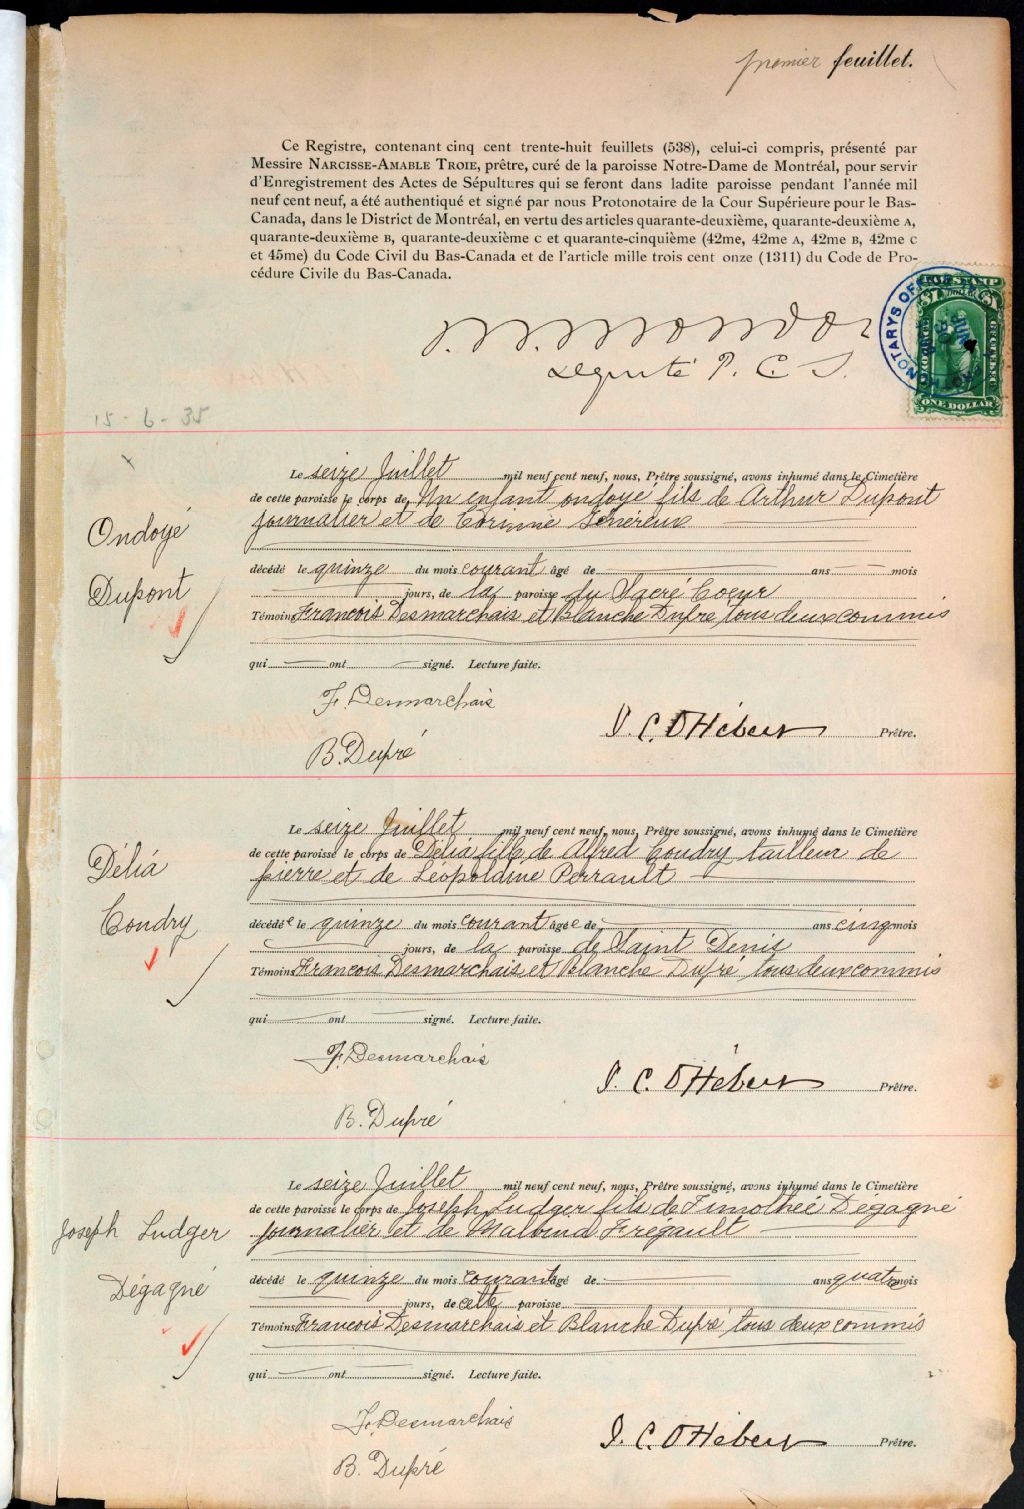 premier feuillet.
Ce Registre, contenant cinq cent trente-huit feuillets (538), celui-ci compris, présenté par
Messire NARCISSE-AMABLE TROIE, prêtre, curé de la paroisse Notre-Dame de Montréal, pour servir
d'Enregistrement des Actes de Sépultures qui se feront dans ladite paroisse pendant l'année mil
neuf cent neuf, a été authentiqué et signé par nous Protonotaire de la Cour Supérieure pour le Bas-
Canada, dans le District de Montréal, en vertu des articles quarante-deuxième, quarante-deuxième A,
quarante-deuxième B, quarante-deuxième C et quarante-cinquième (42me, 42me A, 42me B, 42me C
et 45me) du Code Civil du Bas-Canada et de l'article mille trois cent onze (1311) du Code de Pro-
cédure Civile du Bas-Canada.
député P. C. S.
ONE DOLLAR
15-6-35
Le seize Juillet mil neuf cent neuf, nous, Prêtre soussigné, avons inhumé dans le Cimetière
de cette paroisse le corps de Un enfant ondoyé fils de Arthur Dupont
journalier et de Corinne Généreux
Ondoyé
Dupont
décédé le quinze du mois courant âgé de ans mois
jours, de la paroisse du Sacré Coeur
Témoins Francois Desmarchais et Blanche Dupré, tous deux commis
qui ont signé. Lecture faite.
F. Desmarchais
J. C. O Hébert Prêtre.
B. Dupré
Le seize Juillet mil neuf cent neuf, nous, Prêtre soussigné, avons inhumé dans le Cimetière
de cette paroisse le corps de Délia fille de Alfred Coudry tailleur de
pierre et de Léopoldine Perrault
Délia
Coudry
décédée le quinze du mois courant âgée de ans cinq mois
jours, de la paroisse de Saint Denis
Témoins Francois Desmarchais et Blanche Dupré, tous deux commis
qui ont signé. Lecture faite.
F. Desmarchais
J. C. O Hébert Prêtre.
B. Dupré
Le seize Juillet mil neuf cent neuf, nous, Prêtre soussigné, avons inhumé dans le Cimetière
de cette paroisse le corps de Joseph Ludger fils de Timothée Dégagné
journalier et de Malvina Frégault
Joseph Ludger
Dégagné
décédé le quinze du mois courant âgé de ans quatre mois
jours, de cette paroisse
Témoins Francois Desmarchais et Blanche Dupré, tous deux commis
qui ont signé. Lecture faite.
F. Desmarchais
J. C. O Hébert Prêtre.
B. Dupré